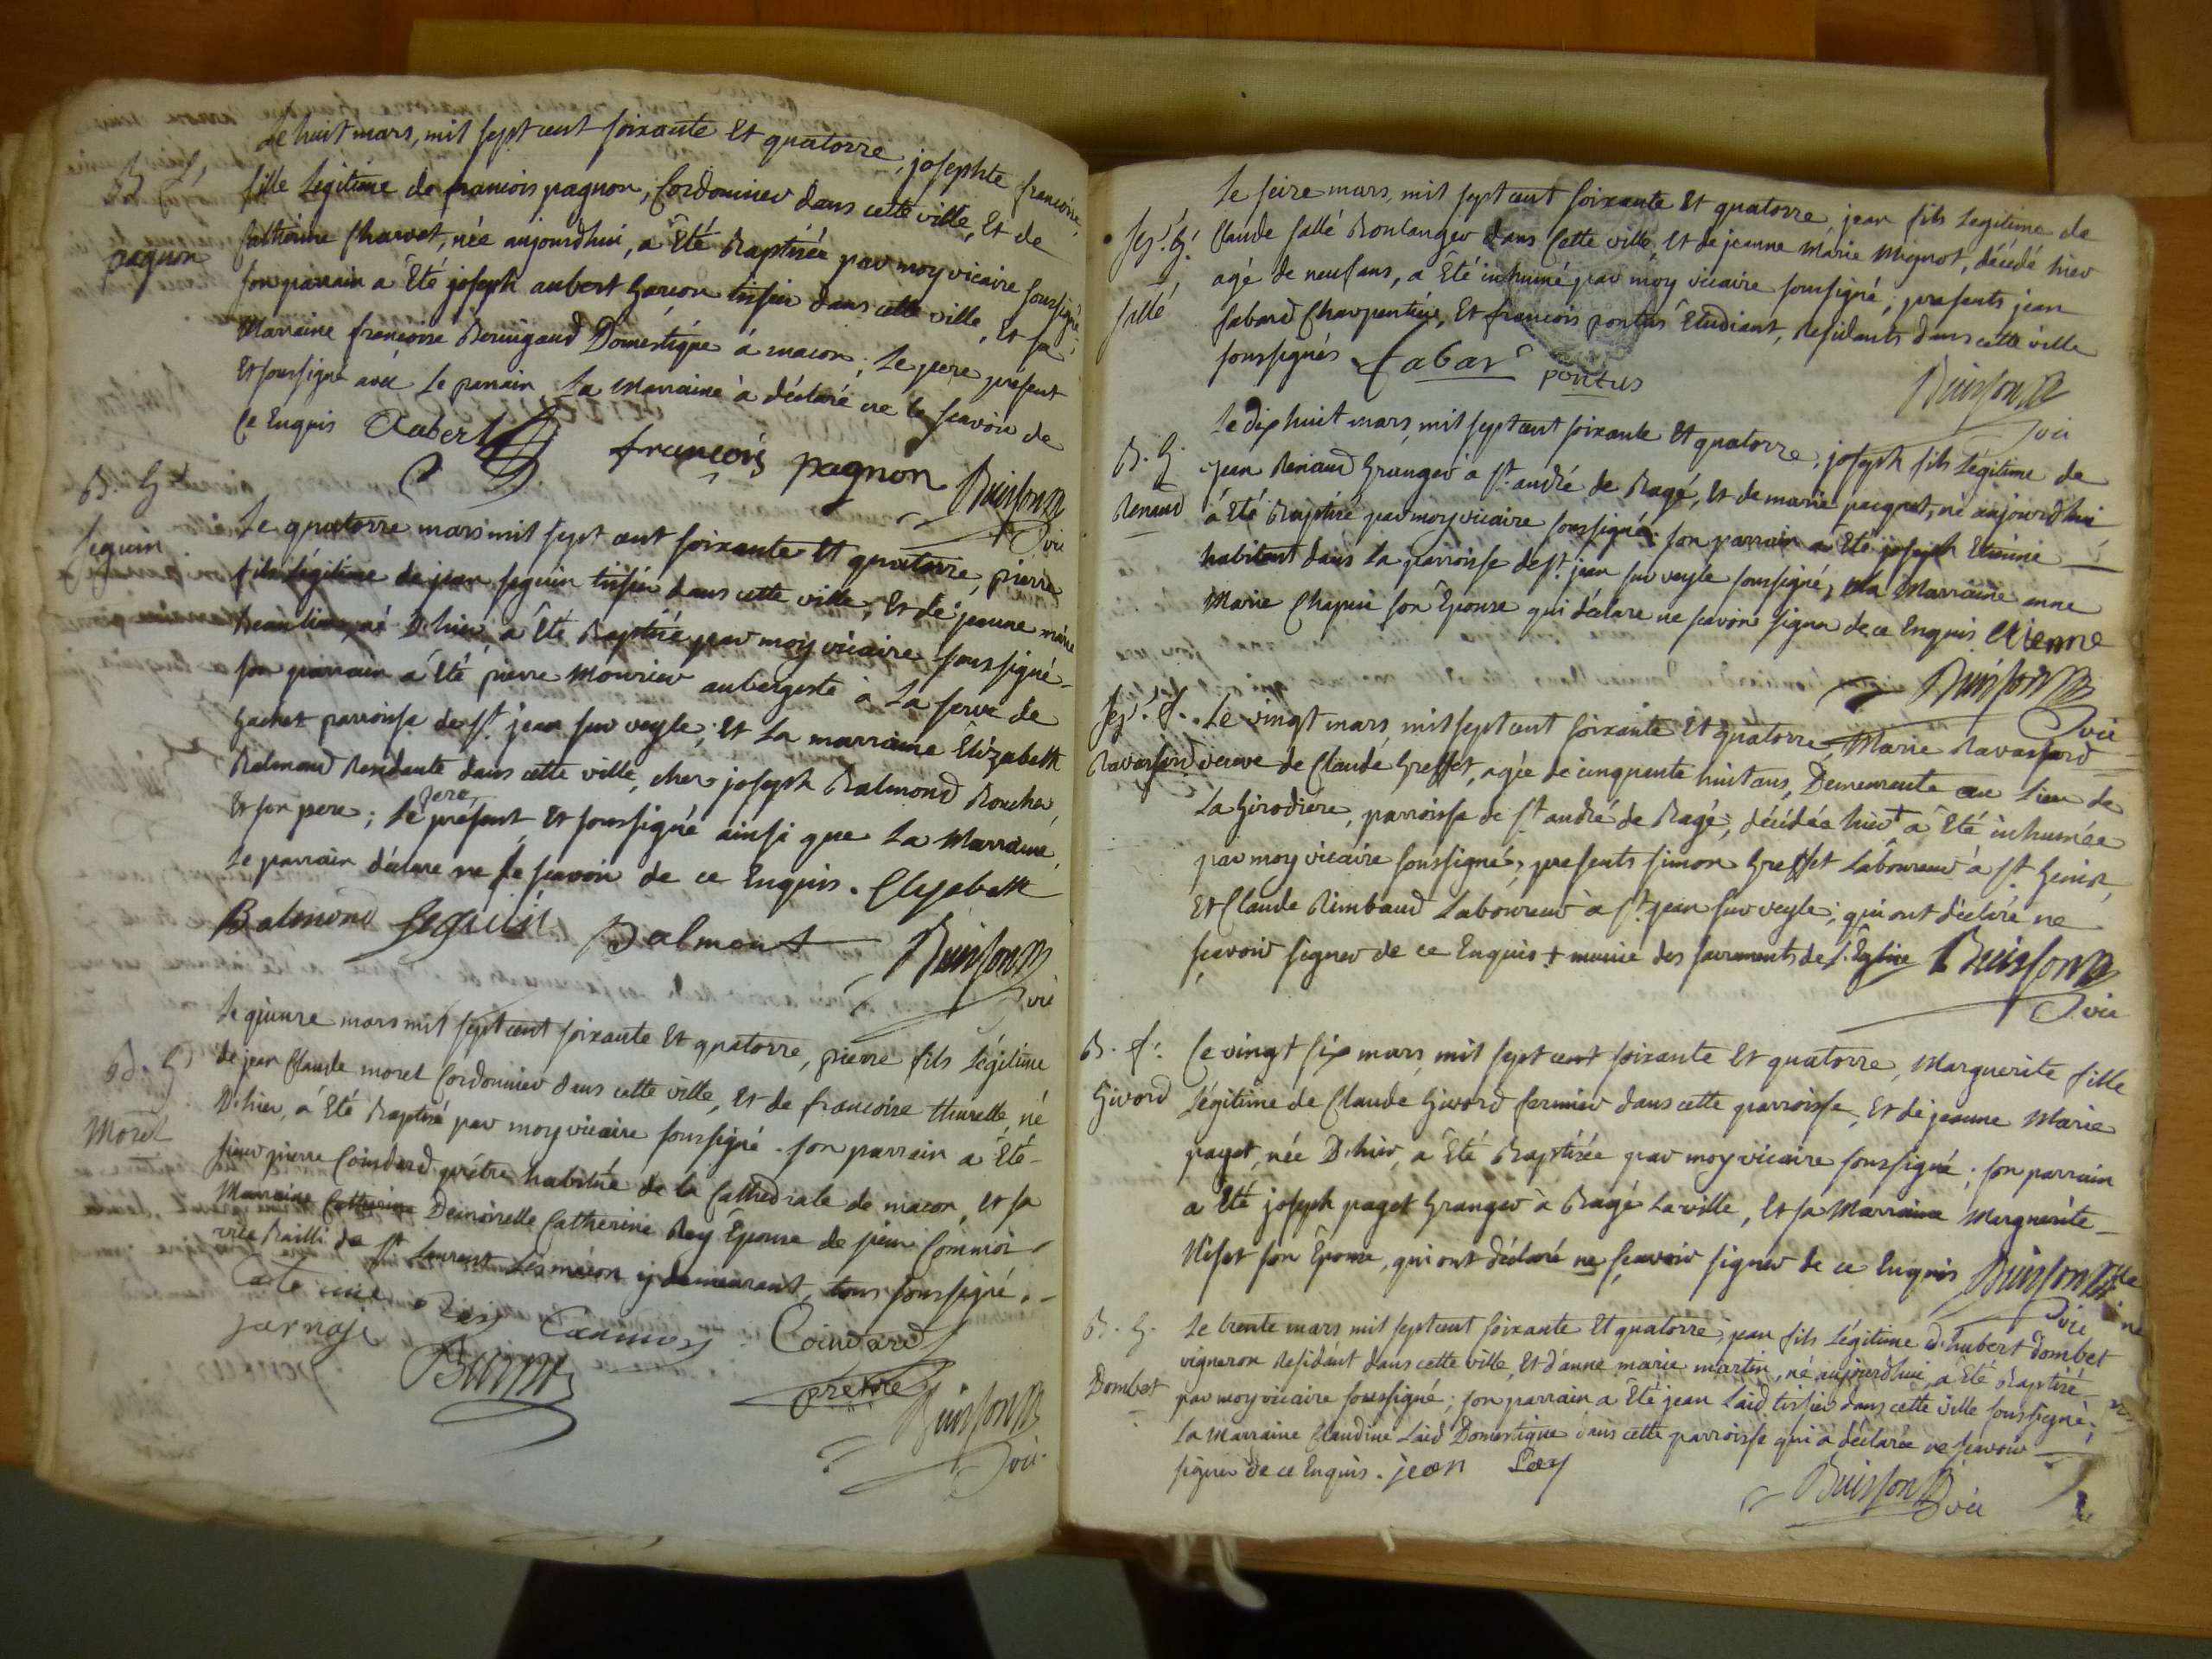 Le huit mars, mil sept cent soixante et quatorze, josephte francoise,
B. f.
fille Legitime de francois pagnon, Cordonnier dans cette ville, et de
pagnon
Catherine Charvet, née aujourdhui, a Eté Baptisée par moy vicaire soussigné;
son parrain a Eté joseph aubert Garcon tissier dans cette ville, et sa
Marraine francoise Domestique à macon; Le pere présent
et soussigné avec Le parrain, La Marraine à déclaré ne le scavoir de
ce Enquis Aubert françois pagnon Buisson
vic
B. G.
Seguin
Le quatorze mars mil sept cent soixante et quatorze, pierre
fils Légitime de jean seguin tissier dans cette ville, Et de jeanne marie
né D'hier, a Eté Baptisé par moy vicaire soussigné
son parrain a Eté pierre Mourier aubergiste à La serve de
Gachet parroisse de St. jean sur veyle; et La marraine Elizabeth
Balmond Residente dans cette ville, chez joseph Balmond Boucher,
et son pere; Le pere présent et soussigné ainsi que La Marraine,
Le parrain déclare ne le scavoir de ce Enquis. Elysabeth
Balmond Seguin Balmont Buisson
vic
Le quinze mars mil sept cent soixante et quatorze, pierre fils Légitime
B. G.
de jean Claude morel Cordonnier dans cette ville, et de francoise thurelle, né
D'hier, a Eté Baptisé par moy vicaire soussigné. son parrain a Eté
Morel
sieur pierre Coindard prêtre habitué de la Cathedrale de macon, et sa
Marraine Catherine Demoiselle Catherine Rey Epouse de sieur Commoi
vice Bailli de St Laurent Les macon y demeurant, tous soussigné.
Caterine Rey Coindard
jarnoje
prêtre
Buisson
vic
Le seize mars, mil sept cent soixante et quatorze jean fils Legitime de
Sep.r G.
Claude sallé Boulanger dans Cette ville, et de jeanne Marie Mignot, décédé hier
agé de neuf ans, a Eté inhumé par moy vicaire soussigné; presents jean
sallé
sabard Charpentier, Et francois pontus Etudiant, Residents dans cette ville
soussignés Sabar pontus
Buisson
vic
Le dix huit mars, mil sept cent soixante et quatorze, joseph fils Légitime de
B. G.
jean Renaud Granger à St. andré de Bagé, Et de marie pacquet, né aujourdhui
Renaud
a Eté Baptisé par moy vicaire soussigné; son parrain a Eté joseph Etienne
habitant dans La parroisse de St. jean sur veyle soussigné, La Marraine anne
Marie Chapuis son Epouse qui déclare ne scavoir signer de ce Enquis Etienne
Buisson
vic
Sep.r f. Le vingt mars, mil sept cent soixante et quatorze, Marie Ravassard
Ravassard veuve de Claude Greffet, agée de cinquante huit ans, Demeurente au Lieu de
La Girodière, parroisse de St andré de Bagé, décédée hier + a Eté inhumée
par moy vicaire soussigné, presents simon Greffet Laboureur à St Genior
et Claude Rimbaud Laboureur à St. jean sur veyle; qui ont déclaré ne
scavoir signer de ce Enquis + munie des sacraments de L'Eglise Buisson
vic
B. f. Le vingt six mars, mil sept cent soixante et quatorze, Marguerite fille
Givord Légitime de Claude Givord fermier dans cette parroisse, et de jeanne Marie
paget, née D'hier, a Eté Baptisée par moy vicaire soussigné; son parrain
a Eté joseph paget Granger à Bagé La ville, et sa Marraine Marguerite
Nisat son Epouse, qui ont déclaré ne scavoir signer de ce Enquis Buisson
vic
B. G. Le trente mars mil sept cent soixante et quatorze; jean fils Légitime d'hubert Dombet
vigneron Residant dans cette ville, et d'anne marie martin, né aujourdhui, a Eté Baptisé
Dombet par moy vicaire soussigné; son parrain a Eté jean Laid tissier dans cette ville soussigné;
La Marraine Claudine Laid Domestique dans cette parroisse qui à déclarée ne scavoir
signer de ce Enquis. jean Lay
Buisson
vic